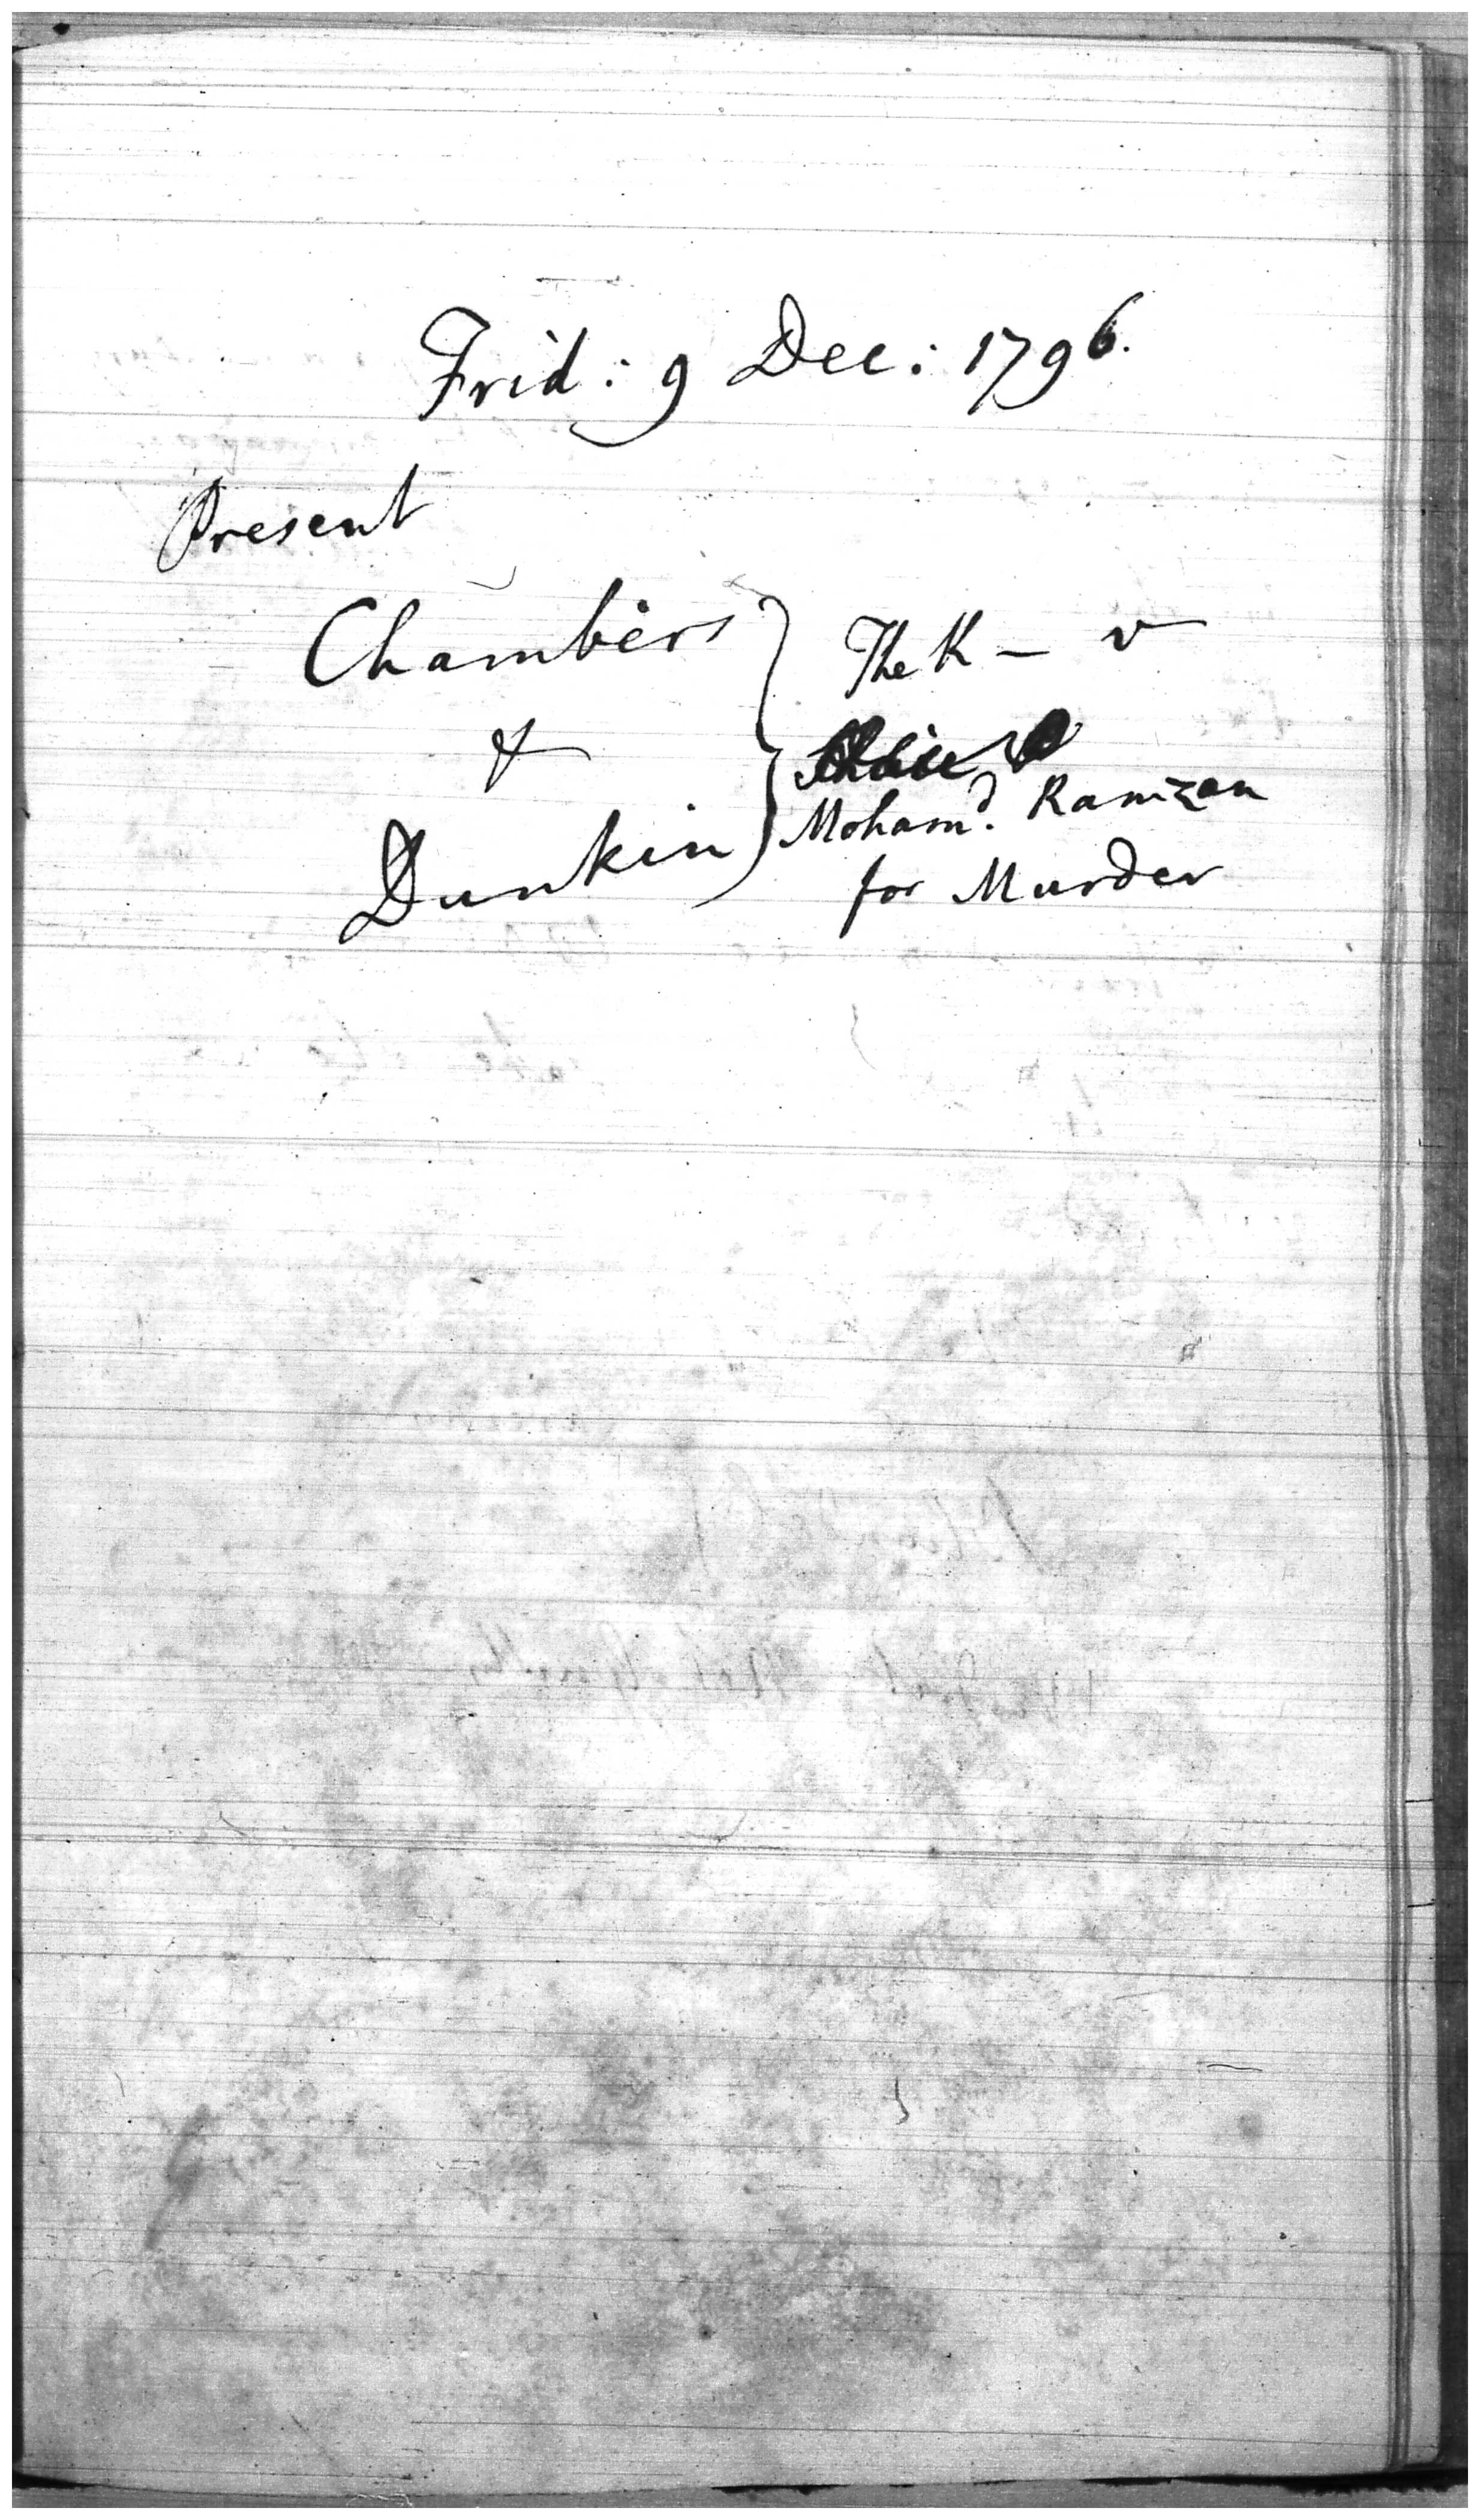 Frid: 9 Dec: 1796.
Present
Chambers
&
Dunkin
The K — v
Moham^d. Ramzan
for Murder